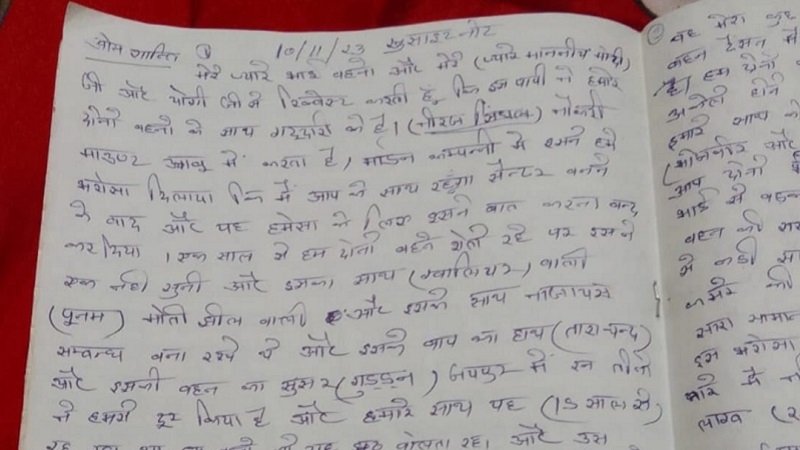 ओम शान्ति ① 10/11/23 सुसाइड नोट
मेरे प्यारे भाई बहनो और मेरे (प्यारे माननीय मोदी)
जी और योगी जी से रिक्वेस्ट करती हूं कि इस पापी ने हमारे
दोनों बहनों के साथ गद्दारी की है। (नीरज सिंघल) नौकरी
माउण्ट आबू में करता है, मार्डन कम्पनी में इसने हमे
भरोसा दिलाया कि मैं आप के साथ रहूंगा सेन्टर बनने
के बाद और यह हमेसा के लिए इसने बात करना बन्द
कर दिया । एक साल से हम दोनों बहने रोती रहे पर इसने
एक नही सुनी और इसका साथ (ग्वालियर) वाली
(पूनम) मोती झील वाली और इसके साथ नाजायस
सम्बन्ध बना रखे थे और इसके बाप का हाथ (ताराचन्द)
और इसकी बहन का सुसर (गुड्डन) जयपुर में इन तीनो
ने हमसे दूर किया है और हमारे साथ यह (15 साल से)
बोलता रहा। और उस
② वह मेरा
बहन टेंसन में
है। हम दोनो
अकेली होने
हमारे साथ
और
आप दोनो
भाई से बहन
बहन की
से कही
कमरे की
सारा सामान
इस भरोसा
मारे मै
लाख